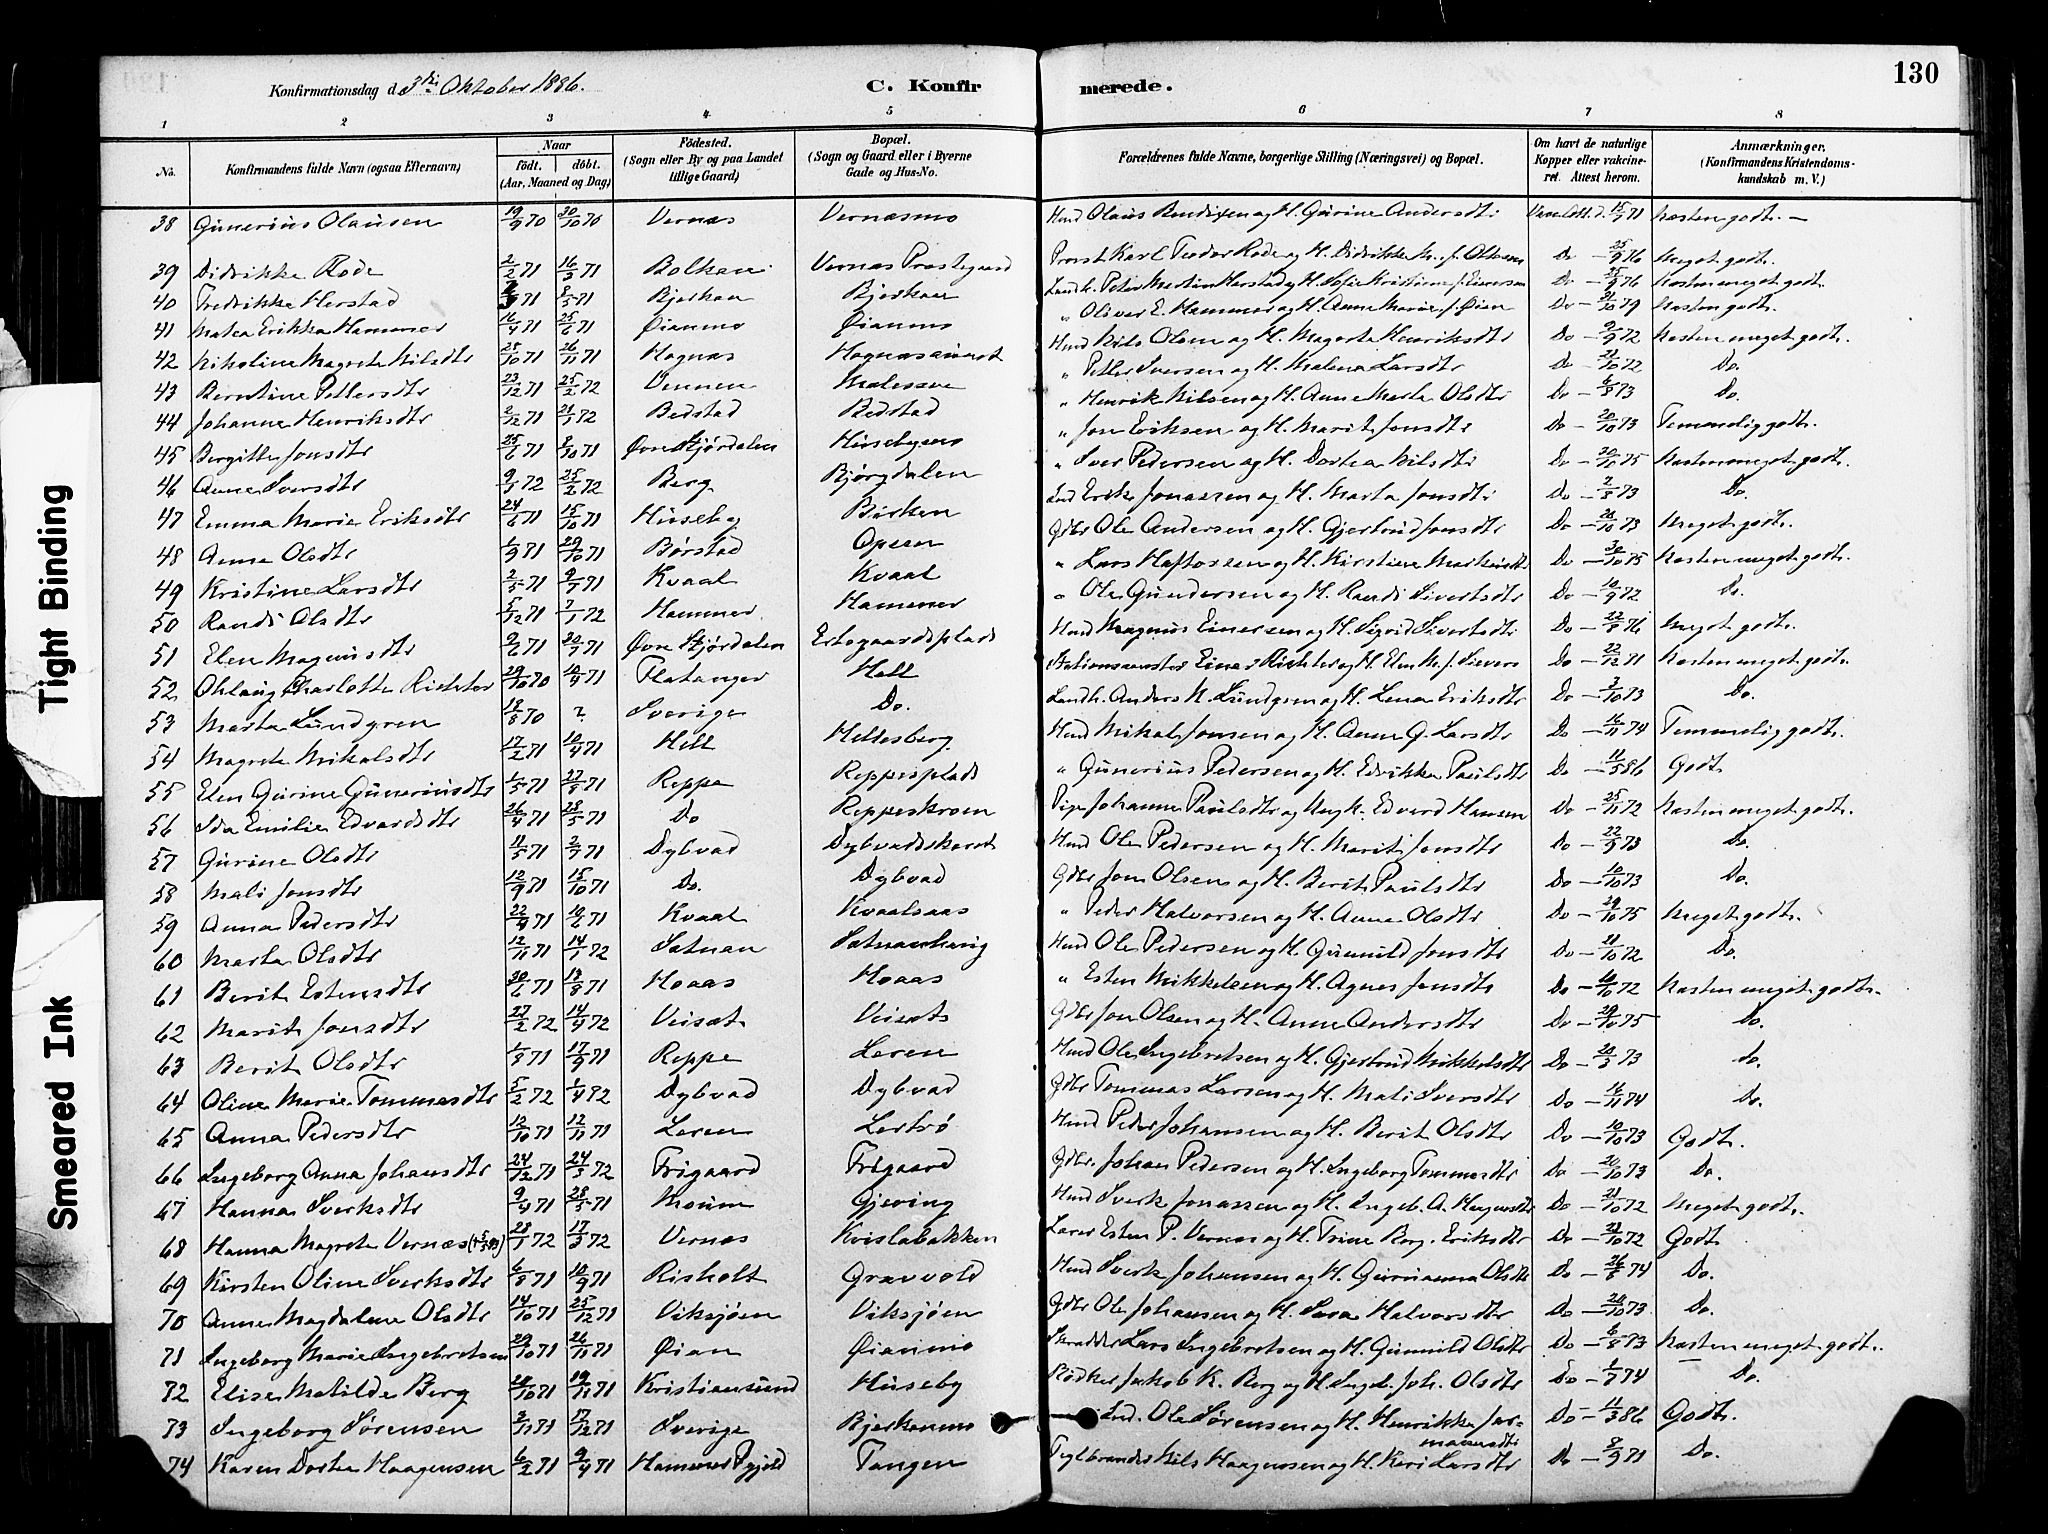 Konfirmationsdag d. 3die Oktober 1886.
C. Konfirmerede.
130
1 2 3 4 5 6 7 8
No. Konfirmandens fulde Navn (ogsaa Efternavn) Naar født. døbt. (Aar, Maaned og Dag) Fødested. (Sogn eller By og paa Landet tillige Gaard) Bopæl. (Sogn og Gaard eller i Byerne Gade og Hus-No. Forældrenes fulde Navne, borgerlige Stilling (Næringsvei) og Bopæl. Om havt de naturlige Kopper eller vakcineret. Attest herom. Anmærkninger. (Konfirmandens Kristendomskundskab m. V.)
38 Gunerius Olausen 19/9 70 30/10 70 Vernæs Vernæsmo Hmd Olaus Bendixen og H. Gurine Andersdtr 15/7 71 Næsten godt.
39 Didrikke Rode 2/2 71 16/3 71 Vernæs Præstegaard Provst Karl Teodor Rode og H. Didrikke Do 25/9 76 Meget godt.
40 Fredrikke Herstad 8/5 71 Bjerkan Bjerkan Peter Martin Herstad og H. Sofie Kristine Do 25/9 76 Næsten meget godt.
41 Matea Erikka Hammer 16/4 71 25/6 71 Øianmo Øianmo " Oliver E. Hammer og H. Anne Marie f. Øien Do 21/10 79 Næsten godt.
42 Nikoline Magrete Nilsdtr 25/10 71 26/11 71 Hognæs Hmd Nils Olsen og H. Magreta Henriksdtr Do 9/9 72 Næsten meget godt.
43 Berntine Pettersdtr 23/12 71 25/2 72 Vennen " Petter Iversen og H. Malena Larsdtr Do 21/10 72 Do.
44 Johanne Henriksdtr 2/12 71 21/1 72 Bedstad Bedstad " Henrik Nilsen og H. Anne Marta Olsdtr Do 6/8 73 Do.
45 Bergitte Jonsdtr 25/6 71 8/10 71 Øvre Stjørdalen Husebymo " Jon Eriksen og H. Marit Jonsdtr Do 20/10 73 Temmelig godt.
46 Anne Iversdtr 9/1 72 25/2 72 Berg Bjørgdalen " Iver Pedersen og H. Dortea Nilsdtr Do 30/10 75 Næsten meget godt.
47 Emma Marie Eriksdtr 24/6 71 15/10 71 Huseby Birken Ind Erik Jonassen og H. Marta Jonsdtr Do 2/8 73 Do.
48 Anne Olsdtr 1/9 71 29/10 71 Børstad Opsen Gdbr Ole Andersen og H. Gjertrud Jonsdtr Do 20/10 73 Meget godt.
49 Kristine Larsdtr 2/5 71 9/7 71 Kvaal Kvaal " Lars Haftorsen og H. Kirstine Do 30/10 75 Næsten meget godt.
50 Randi Olsdtr 5/12 71 7/1 72 Hammer Hammer " Ole Gundersen og H. Randi Sivertsdtr Do 10/9 72 Do.
51 Elen Magnusdtr 2/2 71 30/7 71 Øvre Stjørdalen Ertsgaardsplads Hmd Magnus Einersen og H. Sigrid Sivertsdtr Do 22/8 76 Meget godt.
52 Charlotte Richter 29/10 70 10/4 71 Flatanger Hell Stationsmester Einer Richter og H. Elen M. f. Sivers Do 22/12 71 Næsten meget godt.
53 Marta Lundgren 18/8 70 ? Sverige Do. Landh. Anders N. Lundgren og H. Lena Eriksdtr Do 3/10 73 Do.
54 Magrete Mikalsdtr 17/2 71 10/4 71 Hell Hellesberg Hmd Mikal Jonsen og H. Anne G. Larsdtr Do 16/11 74 Temmelig godt.
55 Elen Gurine Guneriusdtr 1/5 71 27/8 71 Reppe Reppesplads " Gunerius Pedersen og H. Edrikke Paulsdtr Do 11/5 86 Godt
56 Ida Emilie Edvardsdtr 26/4 71 28/5 71 Do Reppeskroen Pige Johanne Paulsdtr og Ungk. Edvard Hansen Do 25/11 72 Næsten meget godt.
57 Gurine Olsdtr 11/5 71 2/7 71 Dybvad Dybvadskaret Hmd Ole Pedersen og H. Marit Jonsdtr Do 22/9 73 Do.
58 Mali Jonsdtr 12/9 71 15/10 71 Do. Dybvad Gdbr Jon Olsen og H. Berit Paulsdtr Do 10/10 73 Do.
59 Anna Pedersdtr 22/4 71 10/6 71 Kvaal Kvaalsaas " Peder Halvorsen og H. Anne Olsdtr Do 29/10 75 Meget godt.
60 Marta Olsdtr 12/11 71 14/1 72 Sætnan Hmd Ole Pedersen og H. Gunnild Jonsdtr Do 21/10 72 Do.
61 Berit Estensdtr 30/6 71 13/8 71 Hoaas Hoaas " Esten Mikkelsen og H. Agnes Jonsdtr Do 10/10 72 Næsten meget godt.
62 Marit Jonsdtr 27/2 72 14/4 72 Veisæt Veisæt Gdbr Jon Olsen og H. Anne Andersdtr Do 29/10 75 Do.
63 Berit Olsdtr 1/8 71 17/9 71 Reppe Leren Hmd Ole Ingebretsen og H. Gjertrud Mikkelsdtr Do 20/3 73 do.
64 Oline Marie Tommasdtr 5/2 72 1/4 72 Dybvad Dybvad Gdbr Tommas Larsen og H. Mali Iversdtr Do 16/11 74 Do.
65 Anna Pedersdtr 12/10 71 12/11 71 Leren Lertrø Hmd Peder Johansen og H. Berit Olsdtr Do 10/10 73 Godt.
66 Ingeborg Anna Johansdtr 24/12 71 24/3 72 Frigaard Frigaard Gdbr. Johan Pedersen og H. Ingeborg Tommasdtr Do 20/10 73 Do.
67 Hanna Sverksdtr 9/4 71 28/5 71 Moum Gjeving Hmd Sverk Jonassen og H. Ingeb. A. Do 21/10 72 Meget godt.
68 Hanna Magrete Vernæs 28/1 72 17/3 72 Vernæs Kvislabakken Lærer Esten P. Vernæs og H. Trine Berg. Eriksdtr Do 21/10 72 Godt
69 Kirsten Oline Sverksdtr 6/8 71 10/9 71 Risholt Gravvold Hmd Sverk Johansen og H. Gurianna Olsdtr Do 26/8 74 Do.
70 Anne Magdalene Olsdtr 14/10 71 25/12 71 Viksjøen Viksjøen Gdbr Ole Johansen og H. Sara Halvorsdtr Do 20/10 73 Do.
71 Ingeborg Marie Ingebretsen 29/10 71 26/11 71 Øian Øianmo Skrædder Lars Ingebretsen og H. Gunnild Olsdtr Do 6/8 73 Næsten meget godt.
72 Elise Matilde Berg 20/10 71 19/11 71 Kristiansund Huseby Bødker Jakob K. Berg og H. Ingeb. Joh. Olsdtr Do 1/7 74 Do.
73 Ingeborg Sørensen 2/11 71 17/12 71 Sverige Bjerkanmo Ind. Ole Sørensen og H. Henrikke Do 11/3 86 Godt.
74 Karen Dortea Haagensen 6/2 71 9/4 71 Hammer Tangen Teglbrænder Nils Haagensen og H. Kari Larsdtr Do 8/9 71 Do.
Tight Binding
Smeared Ink